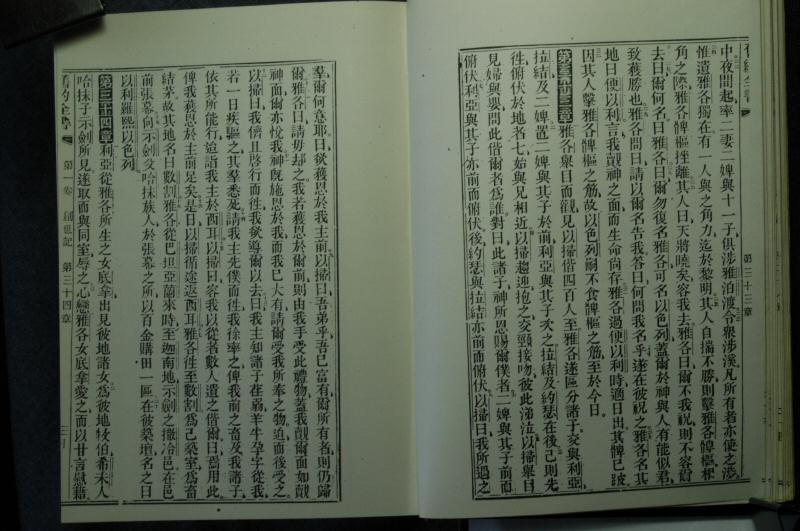 舊約全書
第三十三章
中夜間起率二妻二婢與十一子俱涉雅泊渡令眾涉溪凡所有者亦使之涉
惟遺雅各獨在有一人與之角力迄於黎明其人自揣不勝則擊雅各髀樞相
角之際雅各髀樞挫離其人曰天將曉矣容我去雅各曰爾不我祝則不容爾
去曰爾何名曰雅各曰爾勿復名雅各可名以色列蓋爾於神與人有能似君
致獲勝也雅各問曰請以爾名告我答曰何問我名乎遂在彼祝之雅各名其
地曰便以利言我覿神之面而生命尚存雅各過便以利時適日出其髀已跛
因其人擊雅各髀樞之筋故以色列嗣不食髀樞之筋至於今日
第三十三章雅各舉目而觀見以掃偕四百人至雅各遂區分諸子交與利亞
拉結及二婢置二婢與其子於前利亞與其子次之拉結及約瑟在後己則先
往俯伏於地者七始與兄相近以掃趨迎抱之交頸接吻彼此涕泣以掃舉目
見婦與嬰問此偕爾者為誰對曰此諸子神所恩賜爾僕者二婢與其子前而
俯伏利亞與其子亦前而俯伏後約瑟與拉結亦前而俯伏以掃曰我所遇之
羣爾何意耶曰欲獲恩於我主前以掃曰吾弟乎吾已富有爾所有者則仍歸
爾雅各曰請毋却之我若獲恩於爾前則由我手受此禮物蓋我覿爾面如覿
神面爾亦悅我神既施恩於我而我已大有請爾受我所奉之物迫而後受之
以掃曰我儕且啟行而往我欲導爾以去曰我主知諸子荏弱羊牛孕字從我
若一日疾驅之其羣悉死請我主先僕而往我徐率之俾我前之畜及我諸子
依其所能行迨詣我主於西耳以掃曰容我以從者數人遺之偕爾曰焉用此
俾我獲恩於主前足矣是日以掃循途返西耳雅各往至數割為己築室為畜
結茅故其地名曰數割雅各從巴坦亞蘭來時至迦南地示劍之撒冷邑在邑
前張幕向示劍父哈抹族人於張幕之所以百金購田一區在彼築壇名之曰
以利羅熙以色列
第三十四章利亞從雅各所生之女底拿出見彼地諸女為彼地牧伯希未人
哈抹子示劍所見遂取而與同室辱之心戀雅各女底拿愛之而以甘言慰藉
舊約全書
第一卷 創世記 第三十四章